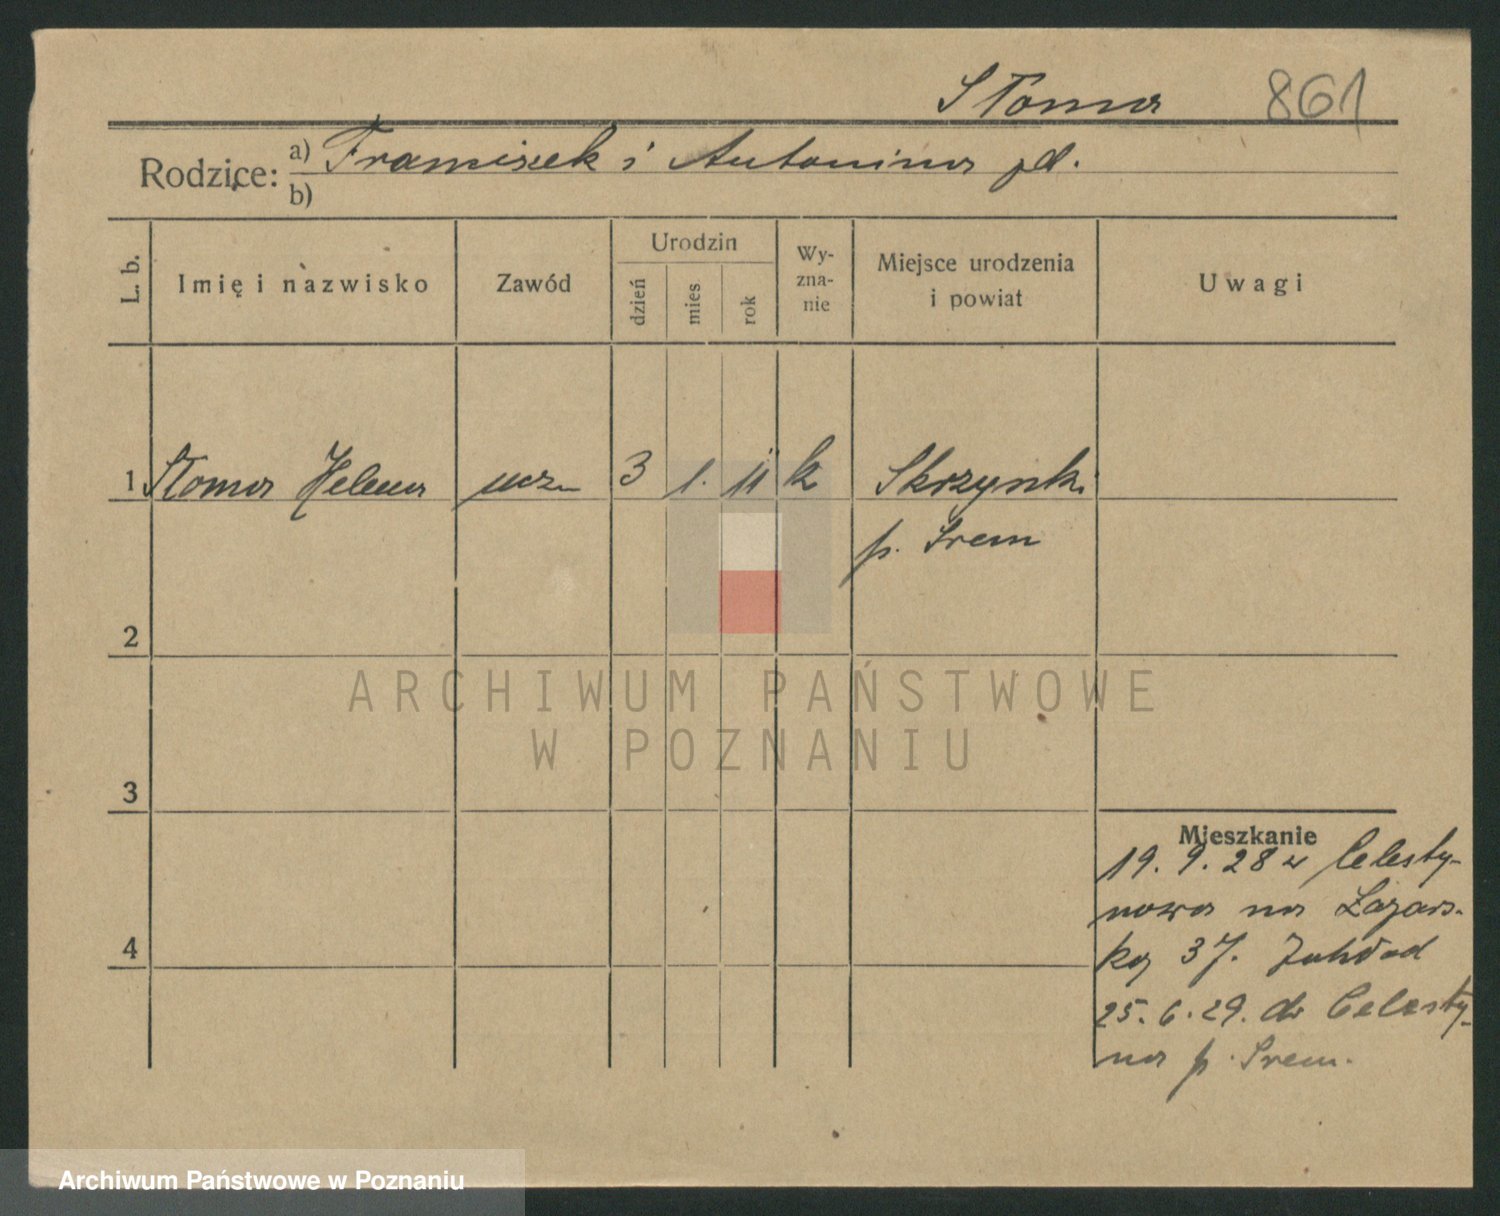 Słoma 861
Rodzice: a) Franciszek i Antonina
b)
L. b. Imię i nazwisko Zawód Urodzin dzień mies rok Wy-zna-nie Miejsce urodzenia i powiat Uwagi
1 Słoma Helena ucz. 3 1. 11 k Skrzynki
p. Śrem
2
3
4
Mieszkanie
19. 9. 28 z Celesty-
nowa na Łazars-
ką 37. Zakład
25. 6. 29. do Celesty-
na p. Śrem.
ARCHIWUM PAŃSTWOWE
W POZNANIU
Archiwum Państwowe w Poznaniu